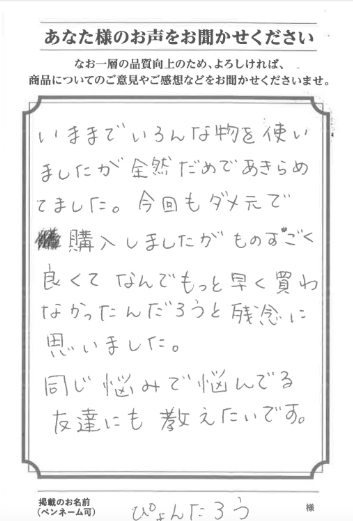 あなた様のお声をお聞かせください
なお一層の品質向上のため、よろしければ、
商品についてのご意見やご感想などをお聞かせくださいませ。
いままでいろんな物を使い
ましたが全然だめであきらめ
てました。今回もダメ元で
購入しましたがものすごく
良くてなんでもっと早く買わ
なかったんだろうと残念に
思いました。
同じ悩みで悩んでる
友達にも教えたいです。
掲載のお名前
(ペンネーム可)
ぴょんたろう
様